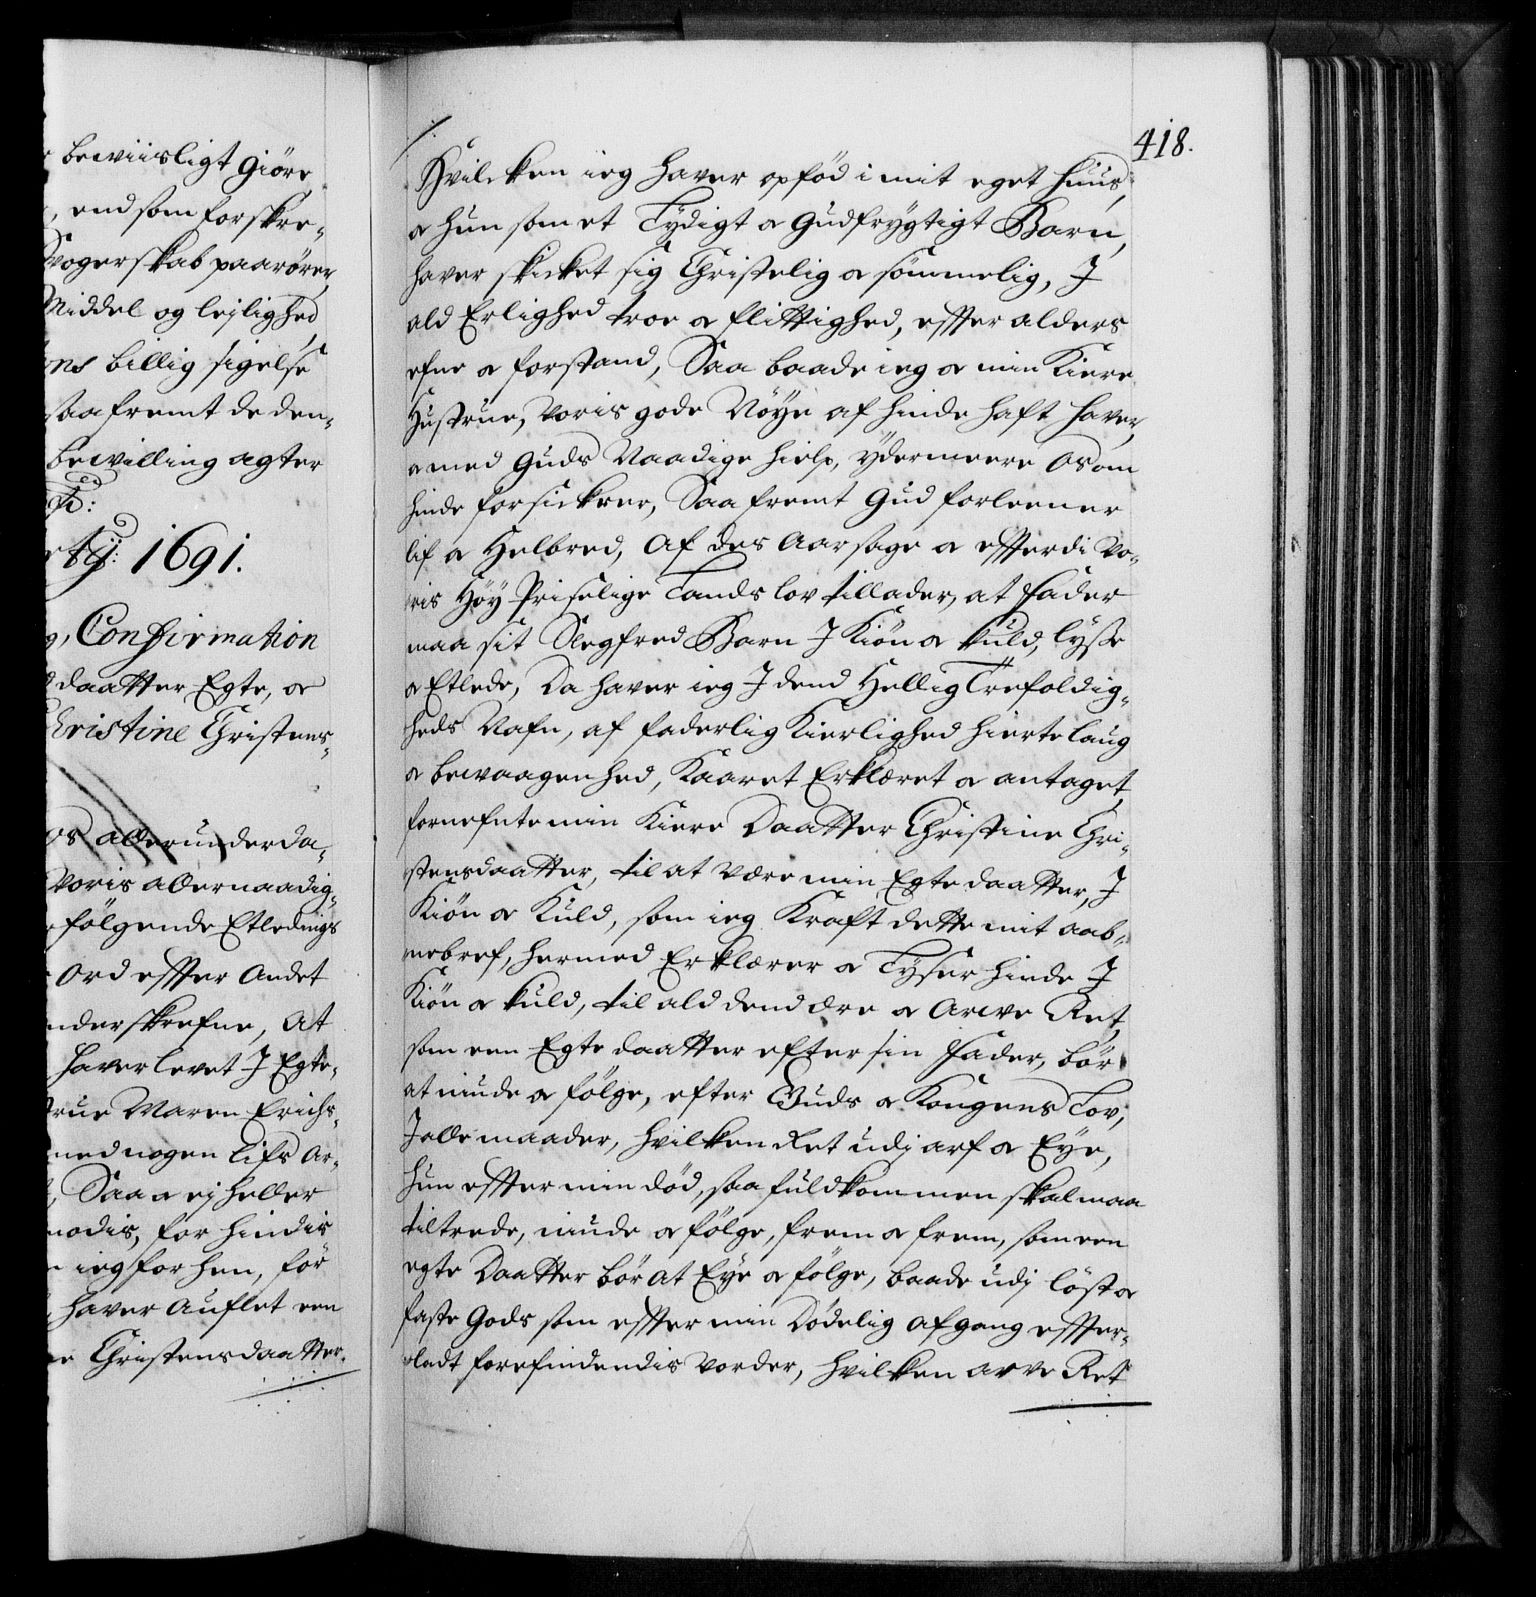 beviisligt giöre
, end som forskre-
Svogerskab paarörer
Middel og lejlighed
billig sigelse
saa fremt de den-
bewilling agter
1691.
Confirmation
daatter Egte, oc
Christine Christens-
os allerunderda-
Voris allernaadig-
fölgende Etlednigs
Ord effter Andet
underskrefne, At
haver levet J Egte-
Maren Erichs-
med nogen lifs Ar-
Saa oc ej heller
for hindis
ieg for hen, for
haver Auflet een
Christensdaatter.
418.
Hvilcken ieg haver opfød i mit eget Huus,
oc hun som et Lydigt oc Gudfrygtigt Barn,
haver skicket sig Christelig oc sömmelig, J
ald Erlighed troe oc flittighed, effter alders
efne oc forstand, Saa baade ieg oc min Kiere
Hustrue, voris gode Nöye af hinde haft haver,
oc med Guds Naadige hielp, ydermeere os om
hinde forsickrer, Saa fremt Gud forleener
lif oc Helbred, Af des Aarsage oc effterdi Vo-
ris Höy Priselige Lands lov tillader, at Fader
maa sit Slegfred Barn J Kiön oc Kuld, lyse
oc Etlede, Da haver ieg J dend Hellig Trefoldig-
heds Nafn, af faderlig Kierlighed hierte laug
oc bewaagenhed, Kaaret Erklæret oc antaget,
fornefnte min Kiere Daatter Christine Chri-
stensdaatter, til at være min Egte daatter, J
Kiön oc Kuld, som ieg Kraft dette mit aab-
nebref, hermed Erklærer oc Lyser hinde J
Kiön oc Kuld, til ald dend ære oc Arwe Ret,
som een Egte daatter efter sin Fader, bör
at niude oc fölge, efter Guds oc Kongens Lov,
J alle maader, hvilken Ret udj arf oc Eye,
hun effter min död, saa fuldkommen skal maa
tiltrede, niude oc fölge, frem oc frem, som een
egte Daatter bör at Eye oc fölge, baade udj löst oc
faste Gods som effter min Dödelig afgang effter-
ladt forefindendis vorder, hvilken arve Ret